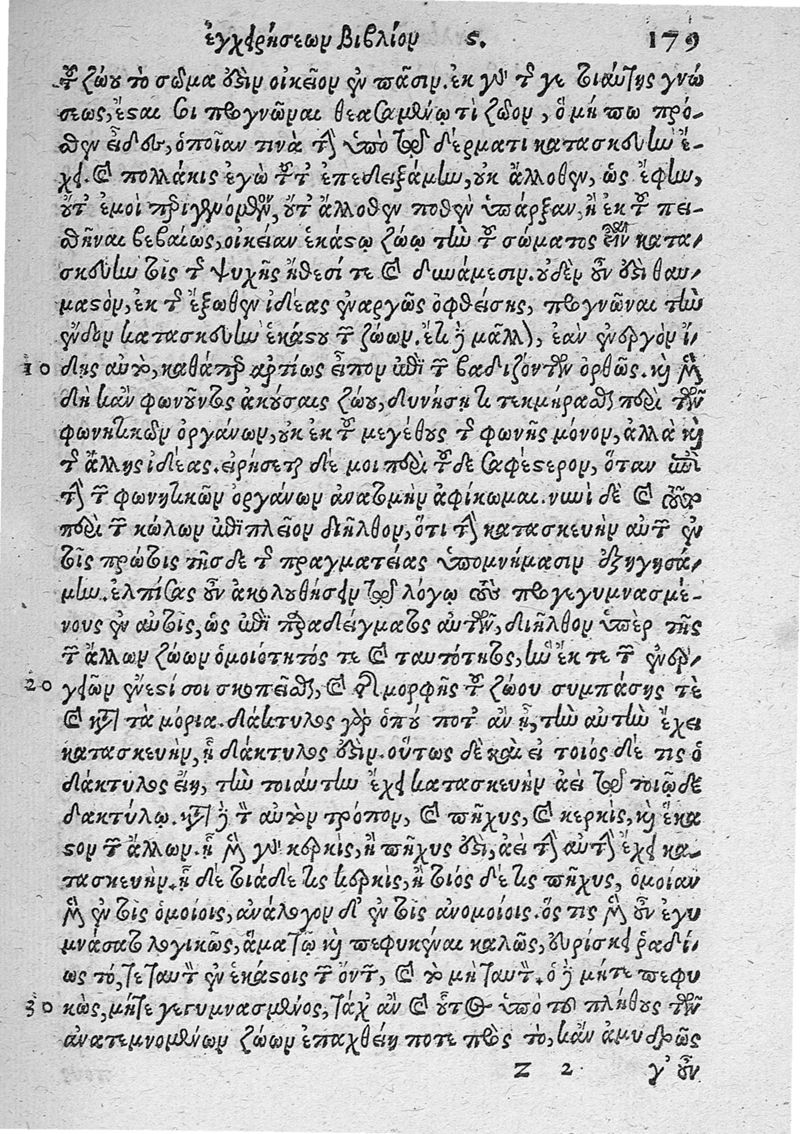 ἐγχειρήσεων Βιβλίον ς. 179
τοῦ ζώου τὸ σῶμα ἐστὶν οἰκεῖον ἐν πᾶσιν. ἐκ γὰρ τῆς γε τοιαύτης γνώ-
σεως, ἔσται σοι προγνῶναι θεασαμένῳ τὶ ζῶον, ὃ μήπω πρό-
σθεν εἶδες, ὁποῖαν τινὰ τὴν ὑπὸ τῷ δέρματι κατασκευὴν ἔ-
χει. καὶ πολλάκις ἐγὼ τοῦτ' ἐπεδειξάμην, οὐκ ἄλλοθεν, ὡς ἔφην,
οὔτ' ἐμοὶ περιγενόμενον, οὔτ' ἄλλοθεν ποθὲν ὑπάρξαν, ἢ ἐκ τοῦ πει-
σθῆναι βεβαίως, οἰκείαν ἑκάστῳ ζώῳ τὴν τοῦ σώματος εἶναι κατα-
σκευὴν τοῖς τῆς ψυχῆς ἤθεσί τε καὶ δυνάμεσιν. οὐδὲν οὖν ἐστὶ θαυ-
μαστὸν, ἐκ τῆς ἔξωθεν ἰδέας ἐναργῶς ὀφθείσης, προγνῶναι τὴν
ἔνδον κατασκευὴν ἑκάστου τῶν ζώων. ἔτι δὲ μᾶλλον, ἐὰν ἐνεργὸν ἴ-
10 δῃς αὐτὸ, καθάπερ ἀρτίως εἶπον ἐπὶ τῶν βαδιζόντων ὀρθῶς. καὶ μὲν
δὴ κἂν φωνοῦντος ἀκούσαις ζώου, δυνήσῃ τι τεκμήρασθαι περὶ τῶν
φωνητικῶν ὀργάνων, οὐκ ἐκ τοῦ μεγέθους τῆς φωνῆς μόνον, ἀλλὰ καὶ
τῆς ἄλλης ἰδέας. εἰρήσεται δέ μοι περὶ τοῦδε σαφέστερον, ὅταν ἐπὶ
τὴν τῶν φωνητικῶν ὀργάνων ἀνατομὴν ἀφίκωμαι. νυνὶ δὲ καὶ
περὶ τῶν κώλων ἐπὶ πλεῖον διῆλθον, ὅτι τὴν κατασκευὴν αὐτῶν ἐν
τοῖς πρώτοις τῆσδε τῆς πραγματείας ὑπομνήμασιν ἐξηγησά-
μην. ἐλπίσας οὖν ἀκολουθήσειν τῷ λόγῳ τοὺς προγεγυμνασμέ-
νους ἐν αὐτοῖς, ὡς ἐπὶ παραδείγματος αὐτῶν, διῆλθον ὑπὲρ τῆς
τῶν ἄλλων ζώων ὁμοιότητός τε καὶ ταυτότητος, ἣν ἔκ τε τῶν ἐνερ-
20 γειῶν ἔνεστί σοι σκοπεῖσθαι, καὶ τῆς μορφῆς τοῦ ζώου συμπάσης τὲ
καὶ κατὰ τὰ μόρια. δάκτυλος γὰρ ὁπού ποτ' ἂν ᾖ, τὴν αὐτὴν ἔχει
κατασκευὴν, ᾗ δάκτυλος ἐστίν. οὕτως δὲ καὶ εἰ τοιός δέ τις ὁ
δάκτυλος εἴη, τὴν τοιαύτην ἔχει κατασκευὴν ἀεὶ τῷ τοιῷδε
δακτύλῳ. κατὰ δὲ τὸν αὐτὸν τρόπον, καὶ πῆχυς, καὶ κερκὶς, καὶ ἕκα
στον τῶν ἄλλων. ᾗ μὲν γὰρ κερκὶς, ἢ πῆχυς ἐστὶ, ἀεὶ τὴν αὐτὴν ἔχει κα-
τασκευὴν. ᾗ δὲ τοιάδέ τις κερκὶς, ἢ τοιός δέ τις πῆχυς, ὁμοίαν
μὲν ἐν τοῖς ὁμοίοις, ἀνάλογον δ' ἐν τοῖς ἀνομοίοις. ὅς τις μὲν οὖν ἐγυ
μνάσατο λογικῶς, ἅμα τῷ καὶ πεφυκέναι καλῶς, εὑρίσκει ῥαδί-
ως τό, τε ταυτὸν ἐν ἑκάστοις τῶν ὄντων, καὶ τὸ μὴ ταυτόν. ὁ δὲ μήτε πεφυ
30 κὼς, μήτε γεγυμνασμένος, τάχ' ἂν καὶ οὗτος ὑπὸ τοῦ πλήθους τῶν
ἀνατεμνομένων ζώων ἐπαχθείη ποτε πρὸς τό, κἂν ἀμυδρῶς
Z 2 γ' οὖν